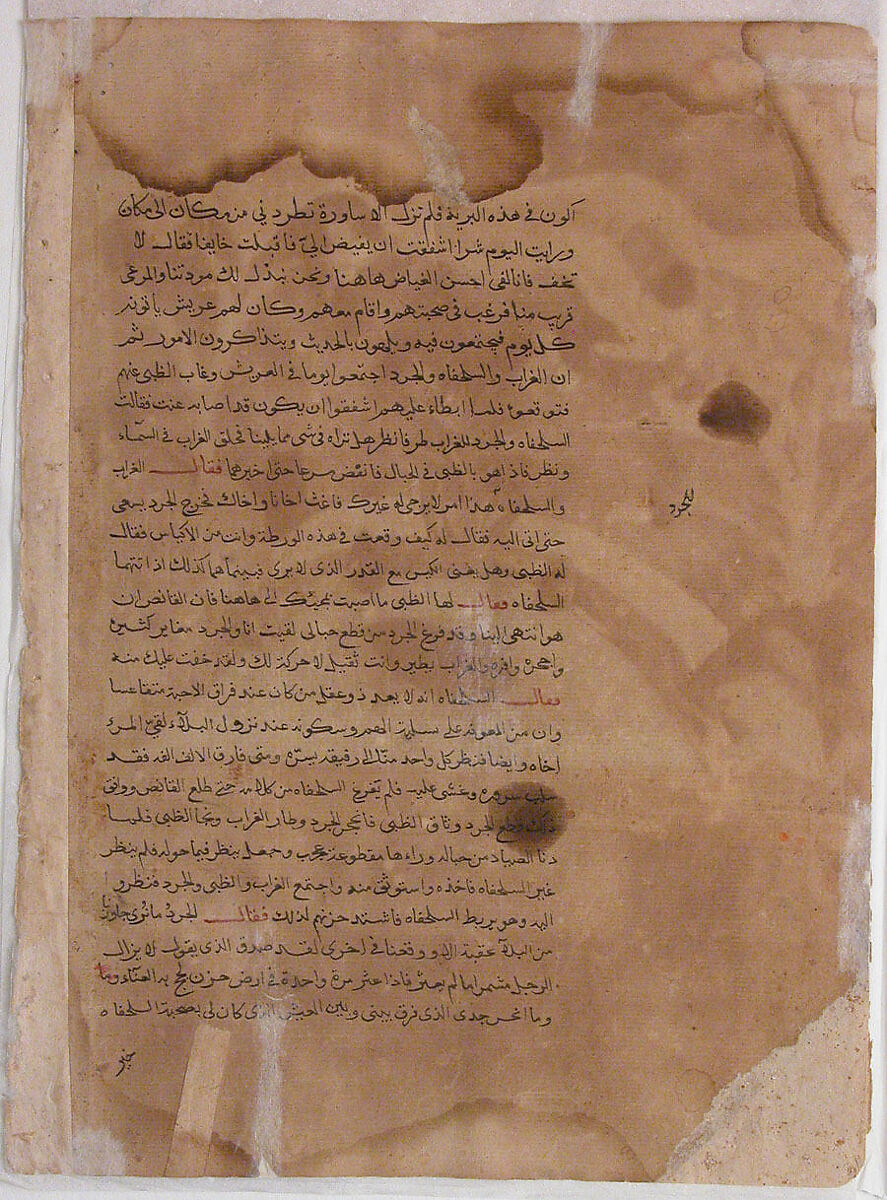 اكون في هذه البرية فلم تزل الاساورة تطردني من مكان الى مكان
ورايت اليوم شرا اشفقت ان يفيض الي فاقبلت خايفا فقال لا
تخف فانا لفي احسن الغياض هاهنا ونحن نبذل لك مودتنا والمرعى
قريب منا فرغب في صحبتهم واقام معهم وكان لهم عريش ياتونه
كل يوم فيجتمعون فيه ويلهون بالحديث ويتذاكرون الامور ثم
ان الغراب والسلحفاه والجرد اجتمعوا يوما في العريش وغاب الظبى عنهم
فتوقعوه فلما ابطاء عليهم اشفقوا ان يكون قد اصابه عنت فقالت
السلحفاه والجرد للغراب طر فانظر هل تراه في شى مما يلينا فحلق الغراب في السماء
ونظر فاذا هو بالظبى في الحبال فانقض مسرعا حتى اخبرهما فقال الغراب
والسلحفاه هذا امر لا يرجى له غيرك فاغث اخانا واخاك فخرج الجرد يسعى
للجرد
حتى اتى اليه فقال له كيف وقعت في هذه الورطة وانت من الاكياس فقال
له الظبى وهل يغنى الكيس مع القدر الذى لا يرى فبينما هما كذلك اذ اتتهما
السلحفاه فقال لها الظبى ما اصبت بمجيئك الى هاهنا فان القانص ان
هو انتهى الينا وقد فرغ الجرد من قطع حبالى لقيت انا والجرد مغاير كثيره
واجحرة وافره والغراب يطير وانت ثقيل لا حركة لك ولقد خفت عليك منه
فقالت السلحفاه انه لا يعد ذو عقل من كان عند فراق الاحبة متقاعسا
وان من المعونه على تسلية الهم وسكونه عند نزول البلاء لقى المرء
اخاه وايضا فنظر كل واحد منا الى رفيقه يسره ومتى فارق الالف الفه فقد
سلب سروره وغشى عليه فلم تفرغ السلحفاه من كلامه حتى طلع القانص ووافق
ذلك قطع الجرد وثاق الظبى فانجحر الجرد وطار الغراب ونجا الظبى فلما
دنا الصياد من حباله وراءها مقطوعة عجب وجعل ينظر فيما حوله فلم ينظر
غير السلحفاه فاخذه واستوثق منه واجتمع الغراب والظبى والجرد فنظروا
اليه وهو يربط السلحفاه فاشتد حزنهم لذلك فقال الجرد ما نرى جاوزنا
من البلاء عقبة الا ووقعنا في اخرى لقد صدق الذى يقول لا يزال
الرجل مشمرا ما لم يعثر فاذا عثر مرة واحدة في ارض حزن لج به العثاء وما
وما اخر جدى الذى فرق بينى وبين العيش الذى كان لى بصحبة السلحفاه